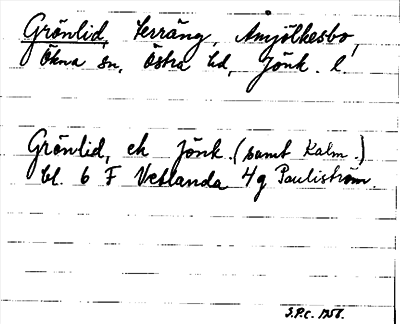 Grönlid, Terräng, Amjölkesbo,
Ökna sn, Östra hd, Jönk. l.
Grönlid, ek Jönk. (samt Kalm.)
bl. 6 F Vetlanda 4g Pauliström.
S.P.C. 1958.